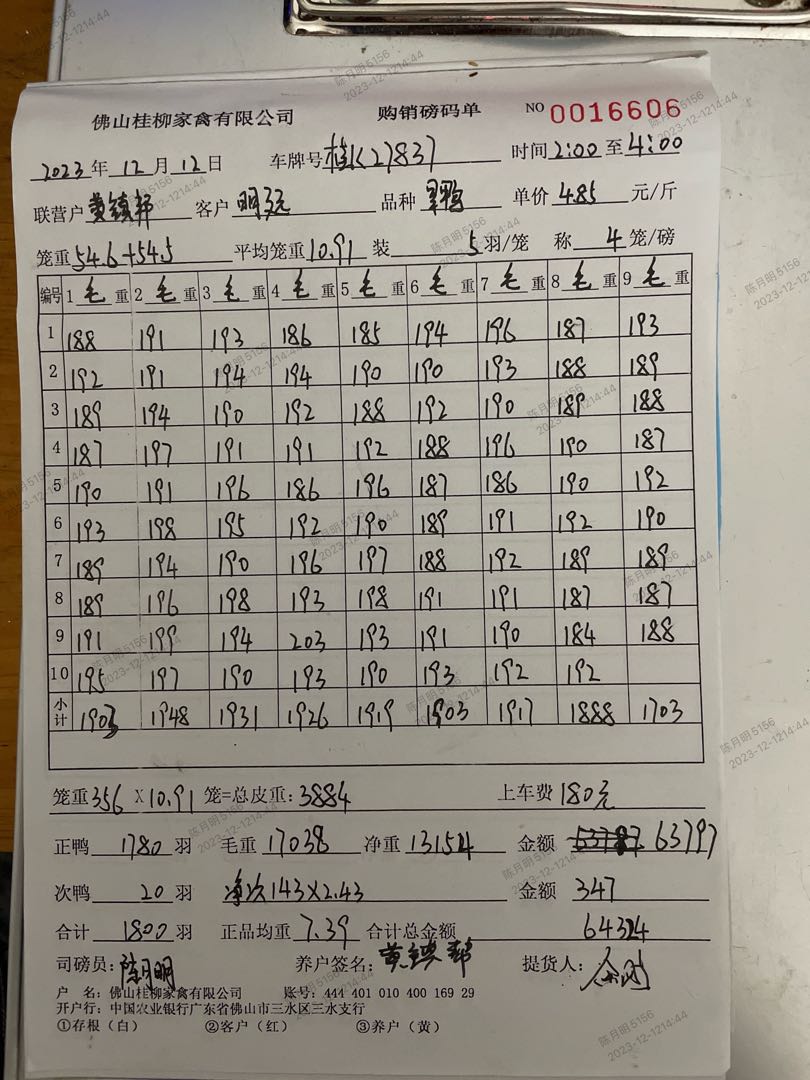 佛山桂柳家禽有限公司 购销磅码单 NO 0016606
2023年12月12日 车牌号桂K27837 时间2:00至4:00
联营户黄镇邦 客户明记 品种 单价4.85元/斤
笼重54.6+54.5 平均笼重10.91 装5羽/笼 称4笼/磅
编号 1毛重 2毛重 3毛重 4毛重 5毛重 6毛重 7毛重 8毛重 9毛重
1 188 191 193 186 185 194 196 187 193
2 192 191 194 194 190 190 193 188 189
3 189 194 190 192 188 192 190 189 188
4 187 197 191 191 192 188 196 190 187
5 190 191 196 186 196 187 186 190 192
6 193 198 195 192 190 189 191 192 190
7 189 194 190 196 197 188 192 189 189
8 189 196 198 193 198 191 191 187 187
9 191 199 194 203 193 191 190 184 188
10 195 197 190 193 190 193 192 192
小计 1903 1948 1931 1926 1919 1903 1917 1888 1703
笼重356×10.91笼=总皮重:3884 上车费180元
正鸭1780羽 毛重17038 净重13154 金额 63797
次鸭20羽 净次143×2.43 金额347
合计1800羽 正品均重7.39 合计总金额64324
司磅员:陈月明 养户签名:黄镇邦 提货人:
户 名:佛山桂柳家禽有限公司 账号:444 401 010 400 169 29
开户行:中国农业银行广东省佛山市三水区三水支行
①存根(白) ②客户(红) ③养户(黄)
陈月明5156
2023-12-12 14:44